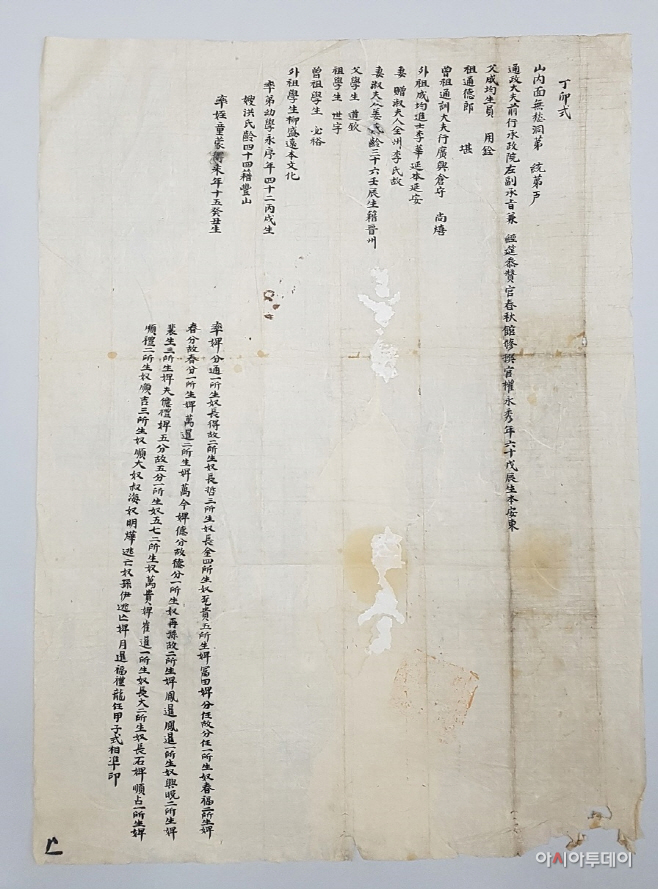 丁卯式
山內面無愁洞第 統第 戶
通政大夫前行承政院左副承旨兼 經筵參贊官春秋館修撰官權永秀年六十戊辰生本安東
父成均生員 用銓
祖通德郎 堪
曾祖通訓大夫行廣興倉守 尚熺
外祖成均進士李華延本延安
妻 贈淑夫人全州李氏故
妻淑夫人姜氏齡三十六壬辰生籍晋州
父學生 道欽
祖學生 世字
曾祖學生 必格
外祖學生柳盛遠本文化
率弟幼學永序年四十二丙戌生
嫂洪氏齡四十四籍豐山
率姪童蒙 來年十五癸丑生
率婢分通一所生奴長得故二所生奴長哲三所生奴長金四所生奴 貴五所生婢富田婢分任故分任一所生奴春福二所生婢
春分故春分一所生婢萬還二所生婢萬今婢德分故德分一所生奴再孫故二所生婢鳳還鳳還一所生奴興晩二所生婢
裴生三所生婢夫德禮婢五分故五分一所生奴五七二所生奴萬貴婢崔還一所生奴長大二所生奴長石婢順占一所生婢
順禮二所生奴順吉三所生奴順大奴叔海奴明燁逃亡奴孫伊逃亡婢月還福禮龍任甲子式相準印
아시아투데이